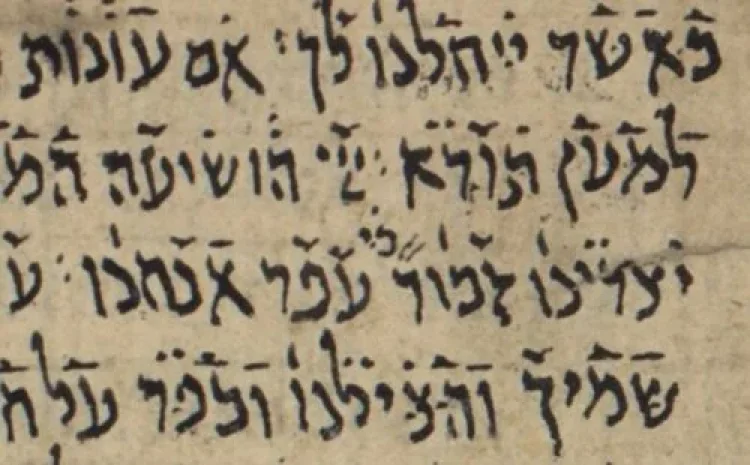 כאשר ייחלנו לך : אם עונות
למען תורא : ייי הושיעה המ
יצרינו זכור כי עפר אנחנו : ע
שמיך והצילנו וכפר על ח